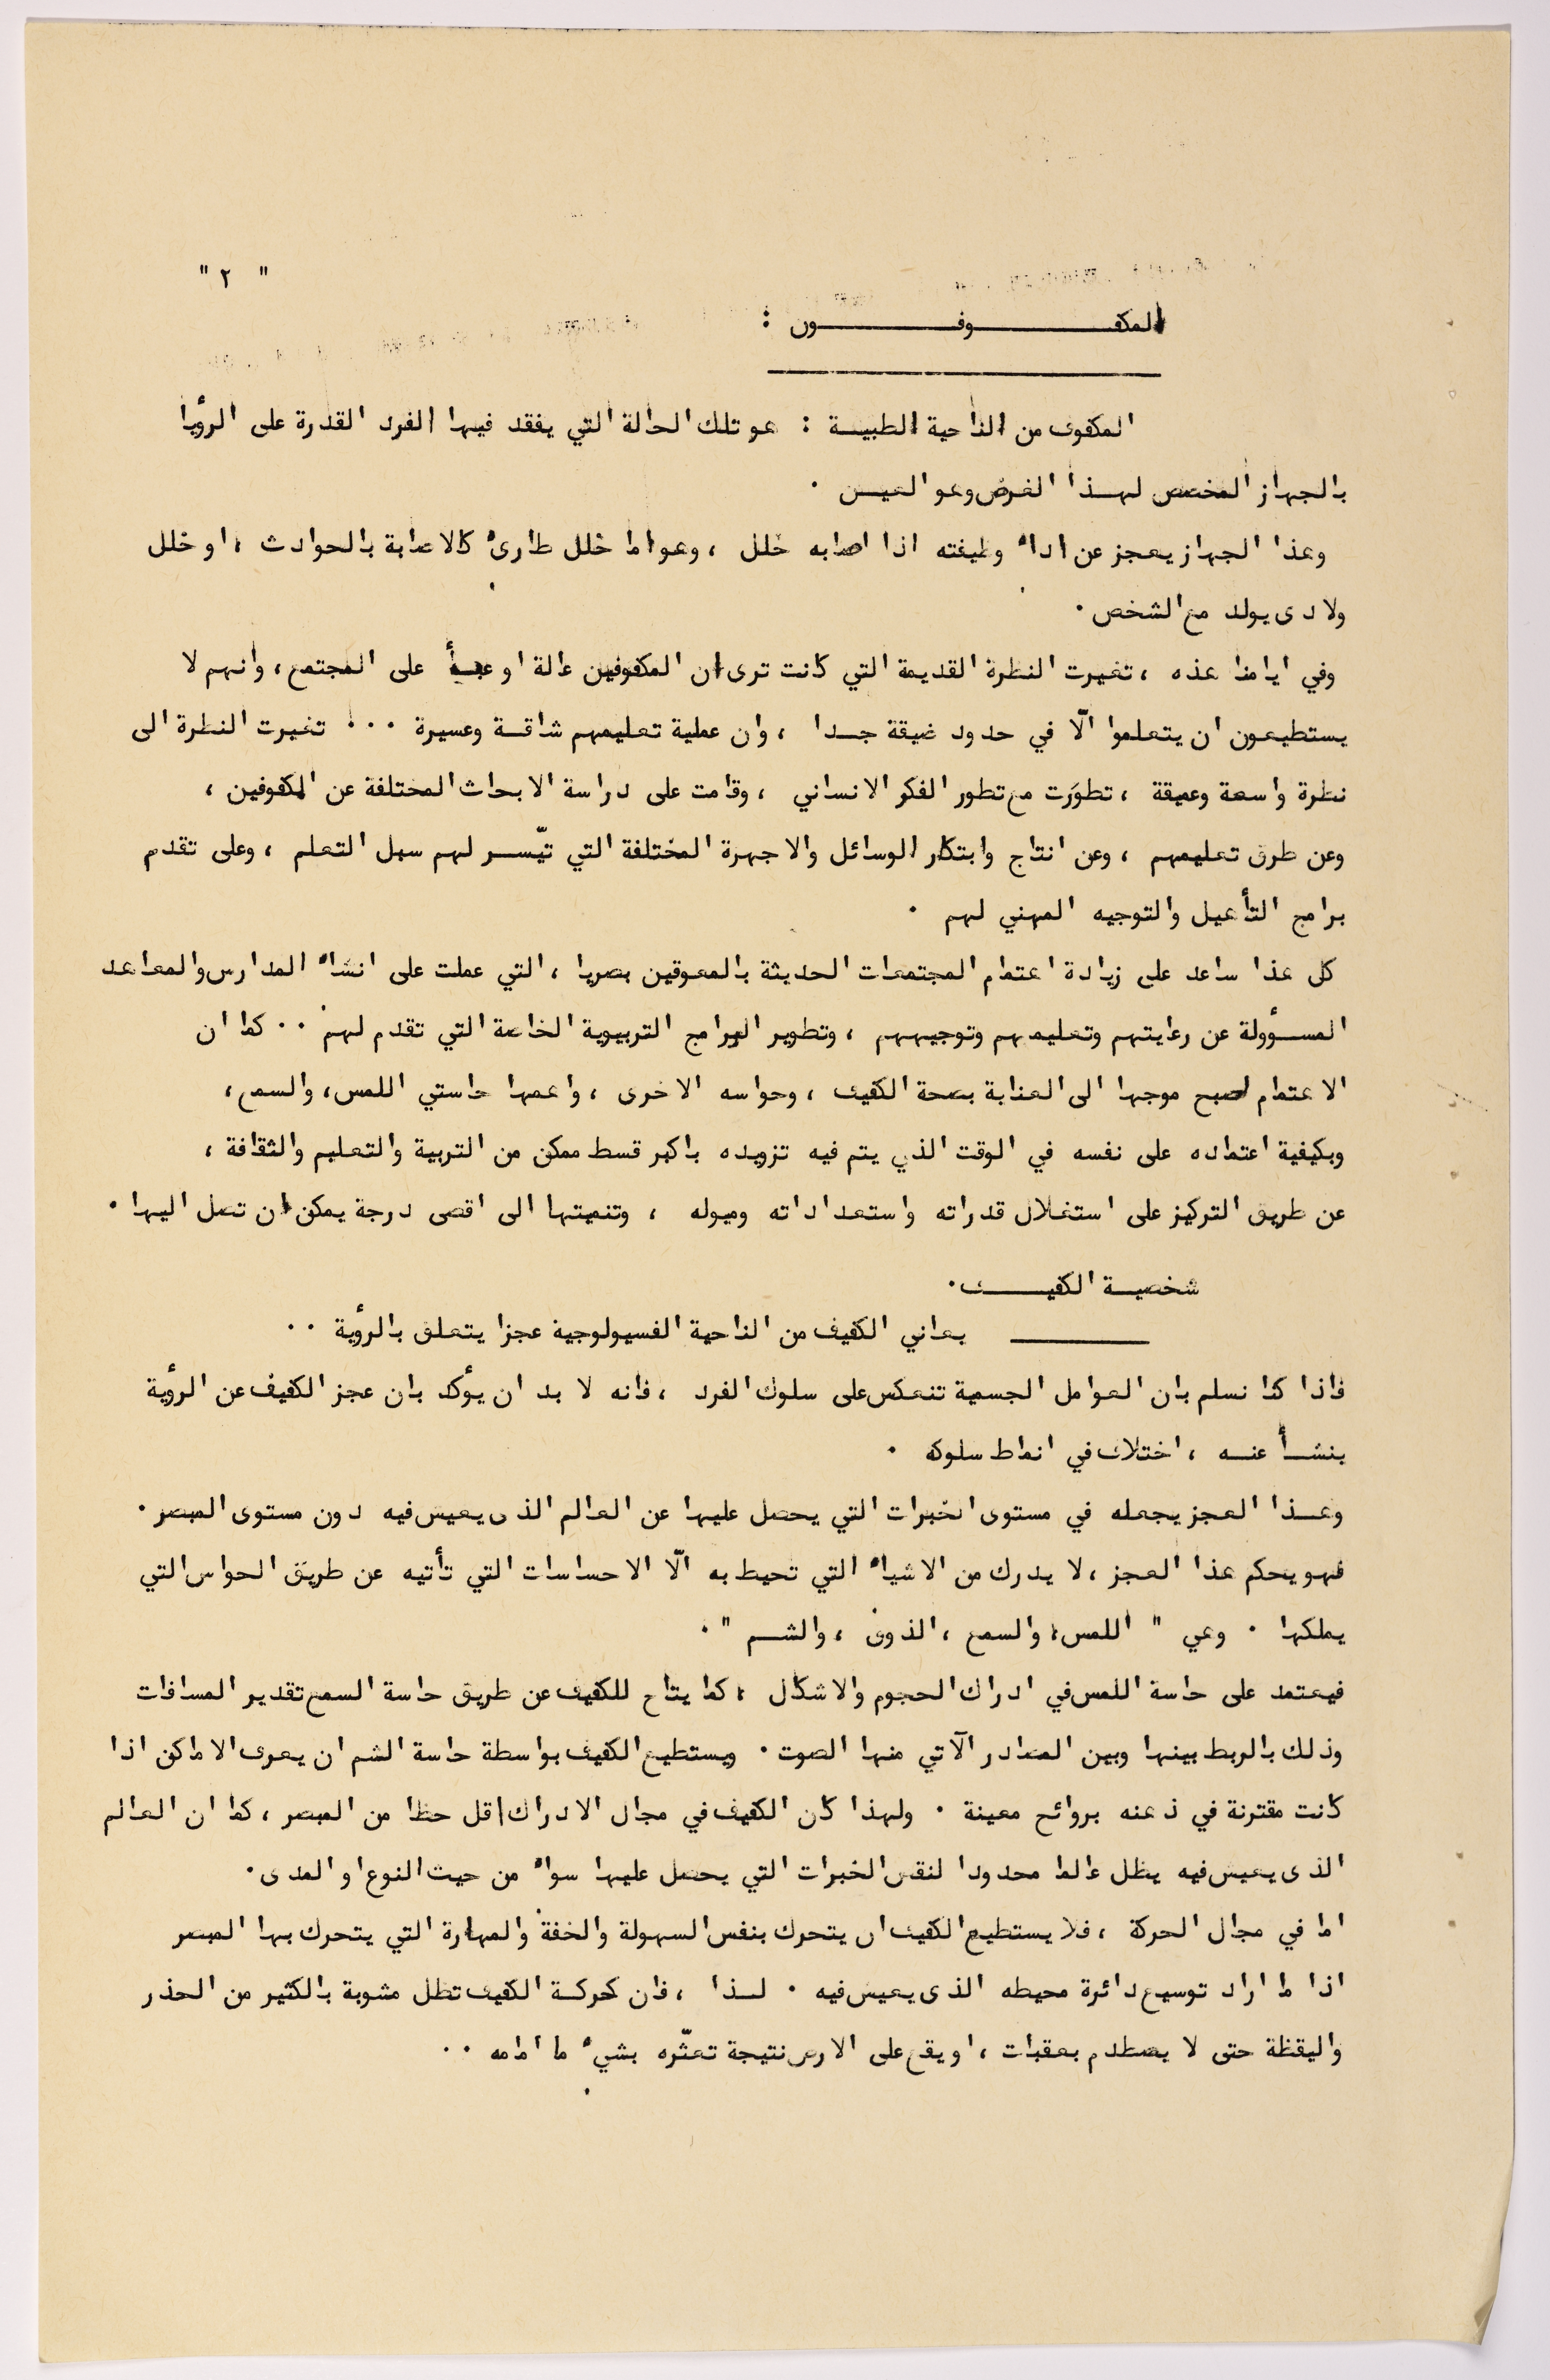 " ٢ "
المكفـــــــوفـــــــون :
المكفوف من الناحية الطبيـة : هو تلك الحالة التي يفقد فيها الفرد القدرة على الرؤيا
بالجهاز المختص لهـذا الغرض وهو العيـن .
وهذا الجهاز يعجز عن اداء وظيفته اذا اصابه خلل ، وهو اما خلل طارىء كالاصابة بالحوادث ، او خلل
ولادى يولد مع الشخص .
وفي ايامنا هذه ، تغيرت النظرة القديمة التي كانت ترى ان المكفوفين عالة او عبـأ على المجتمع ، وانهم لا
يستطيعون ان يتعلموا الّا في حدود ضيقة جـدا ، وان عملية تعليمهم شاقـة وعسيرة ... تغيرت النظرة الى
نظرة واسعة وعميقة ، تطوّرت مع تطور الفكر الانساني ، وقامت على دراسة الابحاث المختلفة عن المكفوفين ،
وعن طرق تعليمهم ، وعن انتاج وابتكار الوسائل والاجهزة المختلفة التي تيّسـر لهم سبل التعلم ، وعلى تقدم
برامج التأهيل والتوجيه المهني لهم .
كل هذا ساعد على زيادة اهتمام المجتمعات الحديثة بالمعوقين بصريا ، التي عملت على انشاء المدارس والمعاهد
المسـؤولة عن رعايتهم وتعليمهم وتوجيههم ، وتطوير البرامج التربيوية الخاصة التي تقدم لهم .. كما ان
الاهتمام اصبح موجها الى العناية بصحة الكفيف ، وحواسه الاخرى ، واهمها حاستي اللمس ، والسمع ،
وبكيفية اعتماده على نفسه في الوقت الذي يتم فيه تزويده باكبر قسط ممكن من التربية والتعليم والثقافة ،
عن طريق التركيز على استغلال قدراته واستعداداته وميوله ، وتنميتها الى اقصى درجة يمكن ان تصل اليها .
شخصيـة الكفيـــف .
يعاني الكفيف من الناحية الفسيولوجية عجزا يتعلق بالرؤية ..
فاذا كنا نسلم بان العوامل الجسمية تنعكس على سلوك الفرد ، فانه لا بد ان يؤكد بان عجز الكفيف عن الرؤية
ينشـأ عنـه ، اختلاف في انماط سلوكه .
وهـذا العجز يجعله في مستوى الخبرات التي يحصل عليها عن العالم الذى يعيش فيه دون مستوى المبصر .
فهو يحكم هذا العجز ، لا يدرك من الاشياء التي تحيط به الّا الاحساسات التي تأتيه عن طريق الحواس التي
يملكها . وهي " اللمس ، والسمع ، الذوق ، والشـم " .
فيعتمد على حاسة اللمس في ادراك الحجوم والاشكال ، كما يتاح للكفيف عن طريق حاسة السمع تقدير المسافات
وذلك بالربط بينها وبين المصادر الآتي منها الصوت . ويستطيع الكفيف بواسطة حاسة الشم ان يعرف الاماكن اذا
كانت مقترنة في ذهنه بروائح معينة . ولهذا كان الكفيف في مجال الادراك اقل حظا من المبصر ، كما ان العالم
الذى يعيش فيه يظل عالما محدودا لنقص الخبرات التي يحصل عليها سواء من حيث النوع او المدى .
اما في مجال الحركة ، فلا يستطيع الكفيف ان يتحرك بنفس السهولة والخفة والمهارة التي يتحرك بها المبصر
اذا ما اراد توسيع دائرة محيطه الذى يعيش فيه . لـذا ، فان حركـة الكفيف تظل مشوبة بالكثير من الحذر
واليقظة حتى لا يصطدم بعقبات ، او يقع على الارض نتيجة تعثّره بشيء ما امامه ..